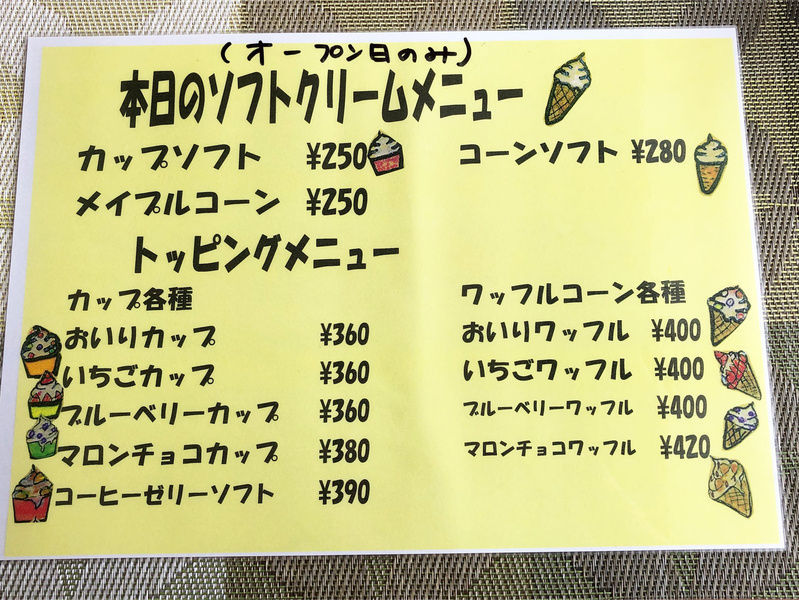 (オープン日のみ)
本日のソフトクリームメニュー
カップソフト ¥250
コーンソフト ¥280
メイプルコーン ¥250
トッピングメニュー
カップ各種
おいりカップ ¥360
いちごカップ ¥360
ブルーベリーカップ ¥360
マロンチョコカップ ¥380
コーヒーゼリーソフト ¥390
ワッフルコーン各種
おいりワッフル ¥400
いちごワッフル ¥400
ブルーベリーワッフル ¥400
マロンチョコワッフル ¥420